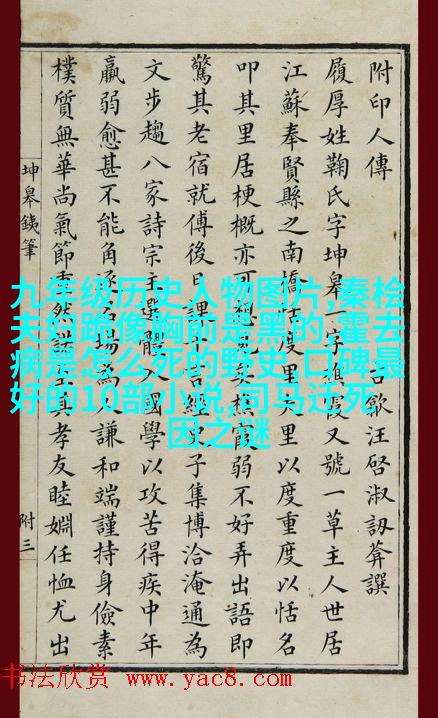 附印人傳
古歙汪啓淑訒葊譔
履厚姓鞠氏字坤皋一字樵霞又號一草主人世居
江蘇奉賢縣之南橋恬度里里以度重度以恬名
叩其里居梗概亦可想見其樵霞弱不好弄出語即
驚其老宿就傅後日課千言經史子集博洽淹通為
文步趨八家詩宗主選體入國學以攻苦得疾中年
羸弱愈甚不能角逐名場為人謙和端謹持身儉素
樸質無華尚氣節重然諾至其孝友睦婣任恤尤出
坤皋銕筆
附三
九年级历史人物图片,秦桧
夫妇跪像胸前是黑的,霍去
病是怎么死的野史,口碑最
好的10部小说,司马迁死
因之谜
书法欣赏 www.yac8.com